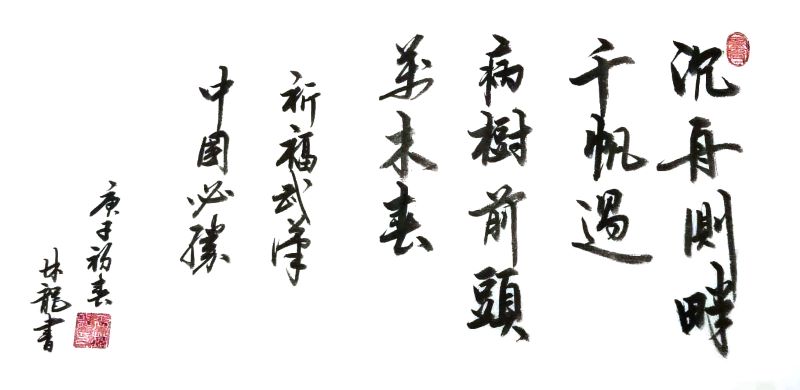 沉舟側畔
千帆過
病樹前頭
萬木春
祈福武漢
中國必勝
庚子初春
林龍書